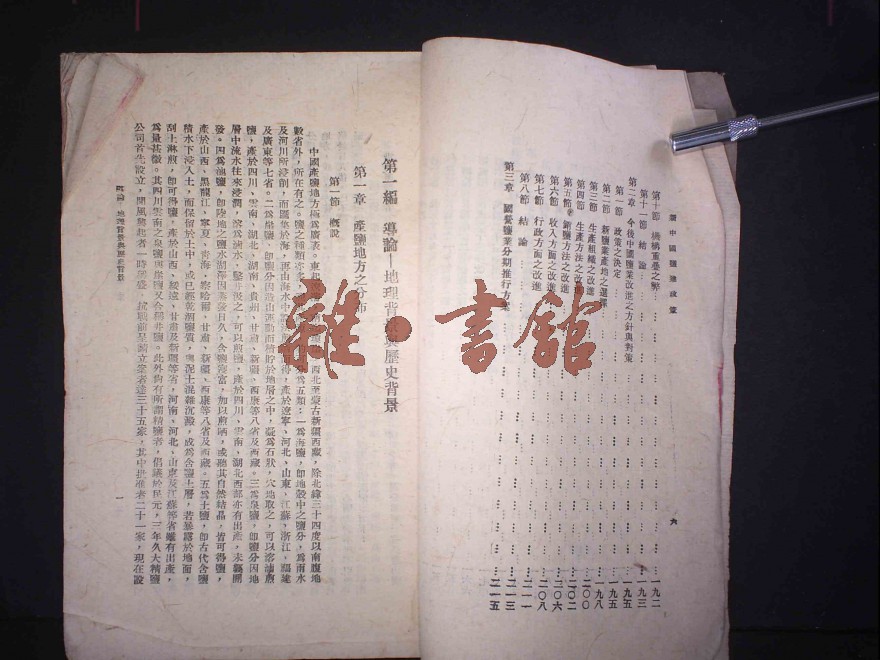 新中國鹽地政策
第十節 機構重疊之弊 一九二
第十一節 結論 一九三
第二章 今後中國鹽業改進之方針與對策 一九五
第一節 政策之決定 一九五
第二節 新鹽業產地之選擇 一九五
第三節 生產組織之改進 一九八
第四節 生產方法之改進 二〇〇
第五節 銷鹽方法之改進 二〇二
第六節 收入方面之改進 二〇六
第七節 行政方面之改進 二〇八
第八節 結論 二一一
第三章 國營鹽業分期推行方案 二一三
二一五
六
第一編 導論—地理背景與歷史背景
第一章 產鹽地方之分布
第一節 概說
中國產鹽地方極為廣袤。東起 西北至蒙古新疆西藏，除北緯三十四度以南腹地
數省外，所在有之。鹽之種類亦多 分為五類：一為海鹽，即地殼中之鹽分，為雨水
及河川所浸剖，而匯集於海，再由海水中 產於遼寧、河北、山東、江蘇、浙江、福建
及廣東等七省。二為岩鹽，即鹽分因造山運動而積貯於地層之中，凝為石狀，穴地取之，可以溶滷煎
鹽，產於四川、雲南、湖北、湖南、貴州、甘肅、新疆、西康等八省及西藏。三為泉鹽，即鹽分因地
層中流水往來浸潤，溶為滷水，鑿井汲之，可以煎鹽，產於四川、雲南、湖北西部亦有出產，未經開
發。四為池鹽，即陸地之鹽水湖沼因蒸發日久，含鹽濃富，加以煎晒，或聽其自然結晶，皆可得鹽，
產於山西、黑龍江、寧夏、青海、察哈爾、甘肅、新疆、西康等八省及西藏。五為土鹽，即古代含鹽
積水下浸入土，而保留於土中，或已經乾涸鹽質，與泥土混雜沉澱，成為含鹽土層，若暴露於地面，
刮土淋煎，即可得鹽，產於山西、綏遠、甘肅及新疆等省，河南、河北、山東及江蘇等省雖有出產，
為量甚微。其四川雲南之泉鹽與岩鹽又合稱井鹽。此外尚有所謂精鹽者，倡議於民元，三年久大精鹽
公司首先設立，聞風興起者一時頗盛，抗戰前呈請立案者達三十五家，其中批准者二十一家，現在設
概論：地理背景與歷史背景
一
雜·書館